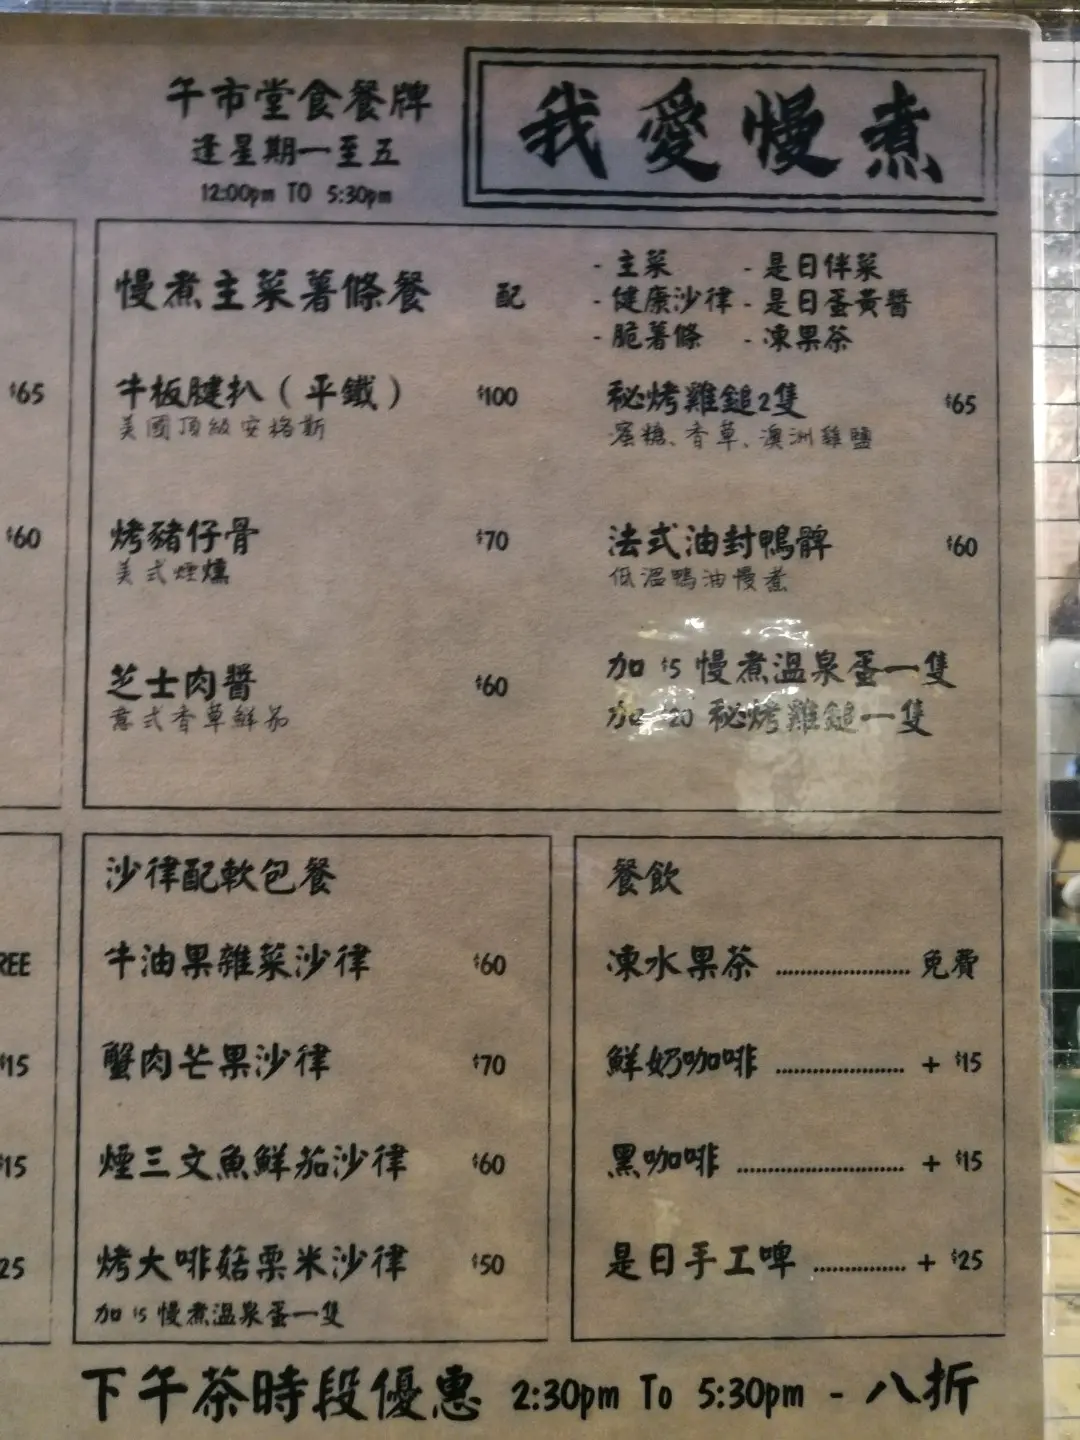 午市堂食餐牌
逢星期一至五
12:00pm TO 5:30pm
我愛慢煮
慢煮主菜薯條餐 配
- 主菜 - 是日伴菜
- 健康沙律 - 是日蛋黃醬
- 脆薯條 - 凍果茶
$65
牛板腱扒（平鐵） $100
美國頂級安格斯
秘烤雞鎚2隻 $65
蜜糖、香草、澳洲雞鹽
$60
烤豬仔骨 $70
美式煙燻
法式油封鴨髀 $60
低溫鴨油慢煮
芝士肉醬 $60
意式香草鮮茄
加 $5 慢煮溫泉蛋一隻
加 $20 秘烤雞鎚一隻
沙律配軟包餐
牛油果雜菜沙律 $60
蟹肉芒果沙律 $70
煙三文魚鮮茄沙律 $60
烤大啡菇栗米沙律 $50
加 $5 慢煮溫泉蛋一隻
餐飲
凍水果茶 ........................ 免費
鮮奶咖啡 ........................ + $15
黑咖啡 ............................... + $15
是日手工啤 ................. + $25
REE
$15
$15
25
下午茶時段優惠 2:30pm To 5:30pm - 八折